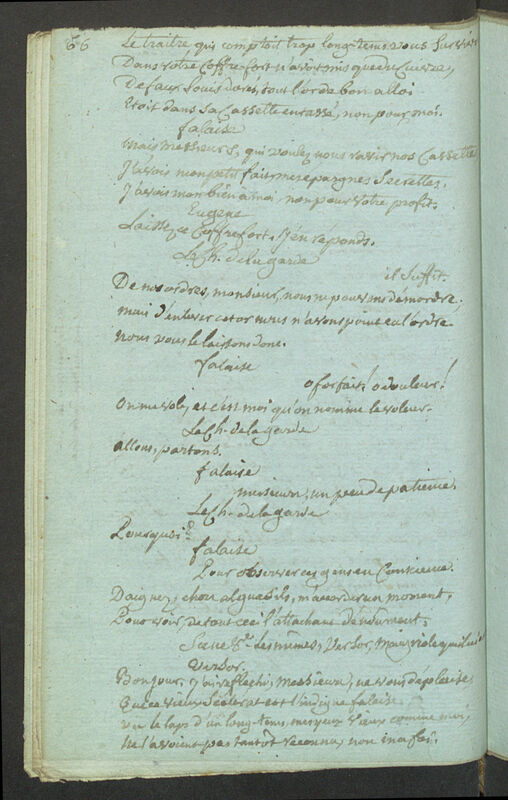 66
Le traitre qui comptoit trop long-tems vous survivre
Dans votre Coffre-fort n'avoit mis que du Cuivre,
De faux Louis dorés, tout l'or de bon alloi
Etoit dans sa Cassette entassé, non pour moi.
falaise
mais messieurs, qui voulez nous ravir nos Cassettes
J'avois mon petit fait, mes epargnes Secrettes,
J'avois mon bien à moi non pour votre profit.
Eugene
Laissez ce Coffre fort. J'en réponds.
Le Ch. de la garde
il Suffit.
De nos ordres, monsieur, nous ne pouvons démordre,
mais d'enlever cet or nous n'avons point eu l'ordre
nous vous le laissons donc.
falaise
o forfait! o douleur!
On me vole, et c'est moi qu'on nomme le voleur.
Le Ch. de la garde
allons, partons.
falaise
messieurs, un peu de patience.
Le Ch. de la garde
Pourquoi?
falaise
Pour observer ces gens en Conscience.
Daignez, chers alguasils, m'accorder un moment,
Pour voir, de tout ceci l'attachant dénouement,
Scene les mêmes, Versor,
Versor.
Bonjour. J'ai réflechi, messieurs, ne vous déplaise,
Que ce vieux Scélérat est l'indigne falaise
vu le laps d'un long-tems, mes yeux vieux comme moi,
Ne l'avoient pas tantôt reconnu, non ma foi.